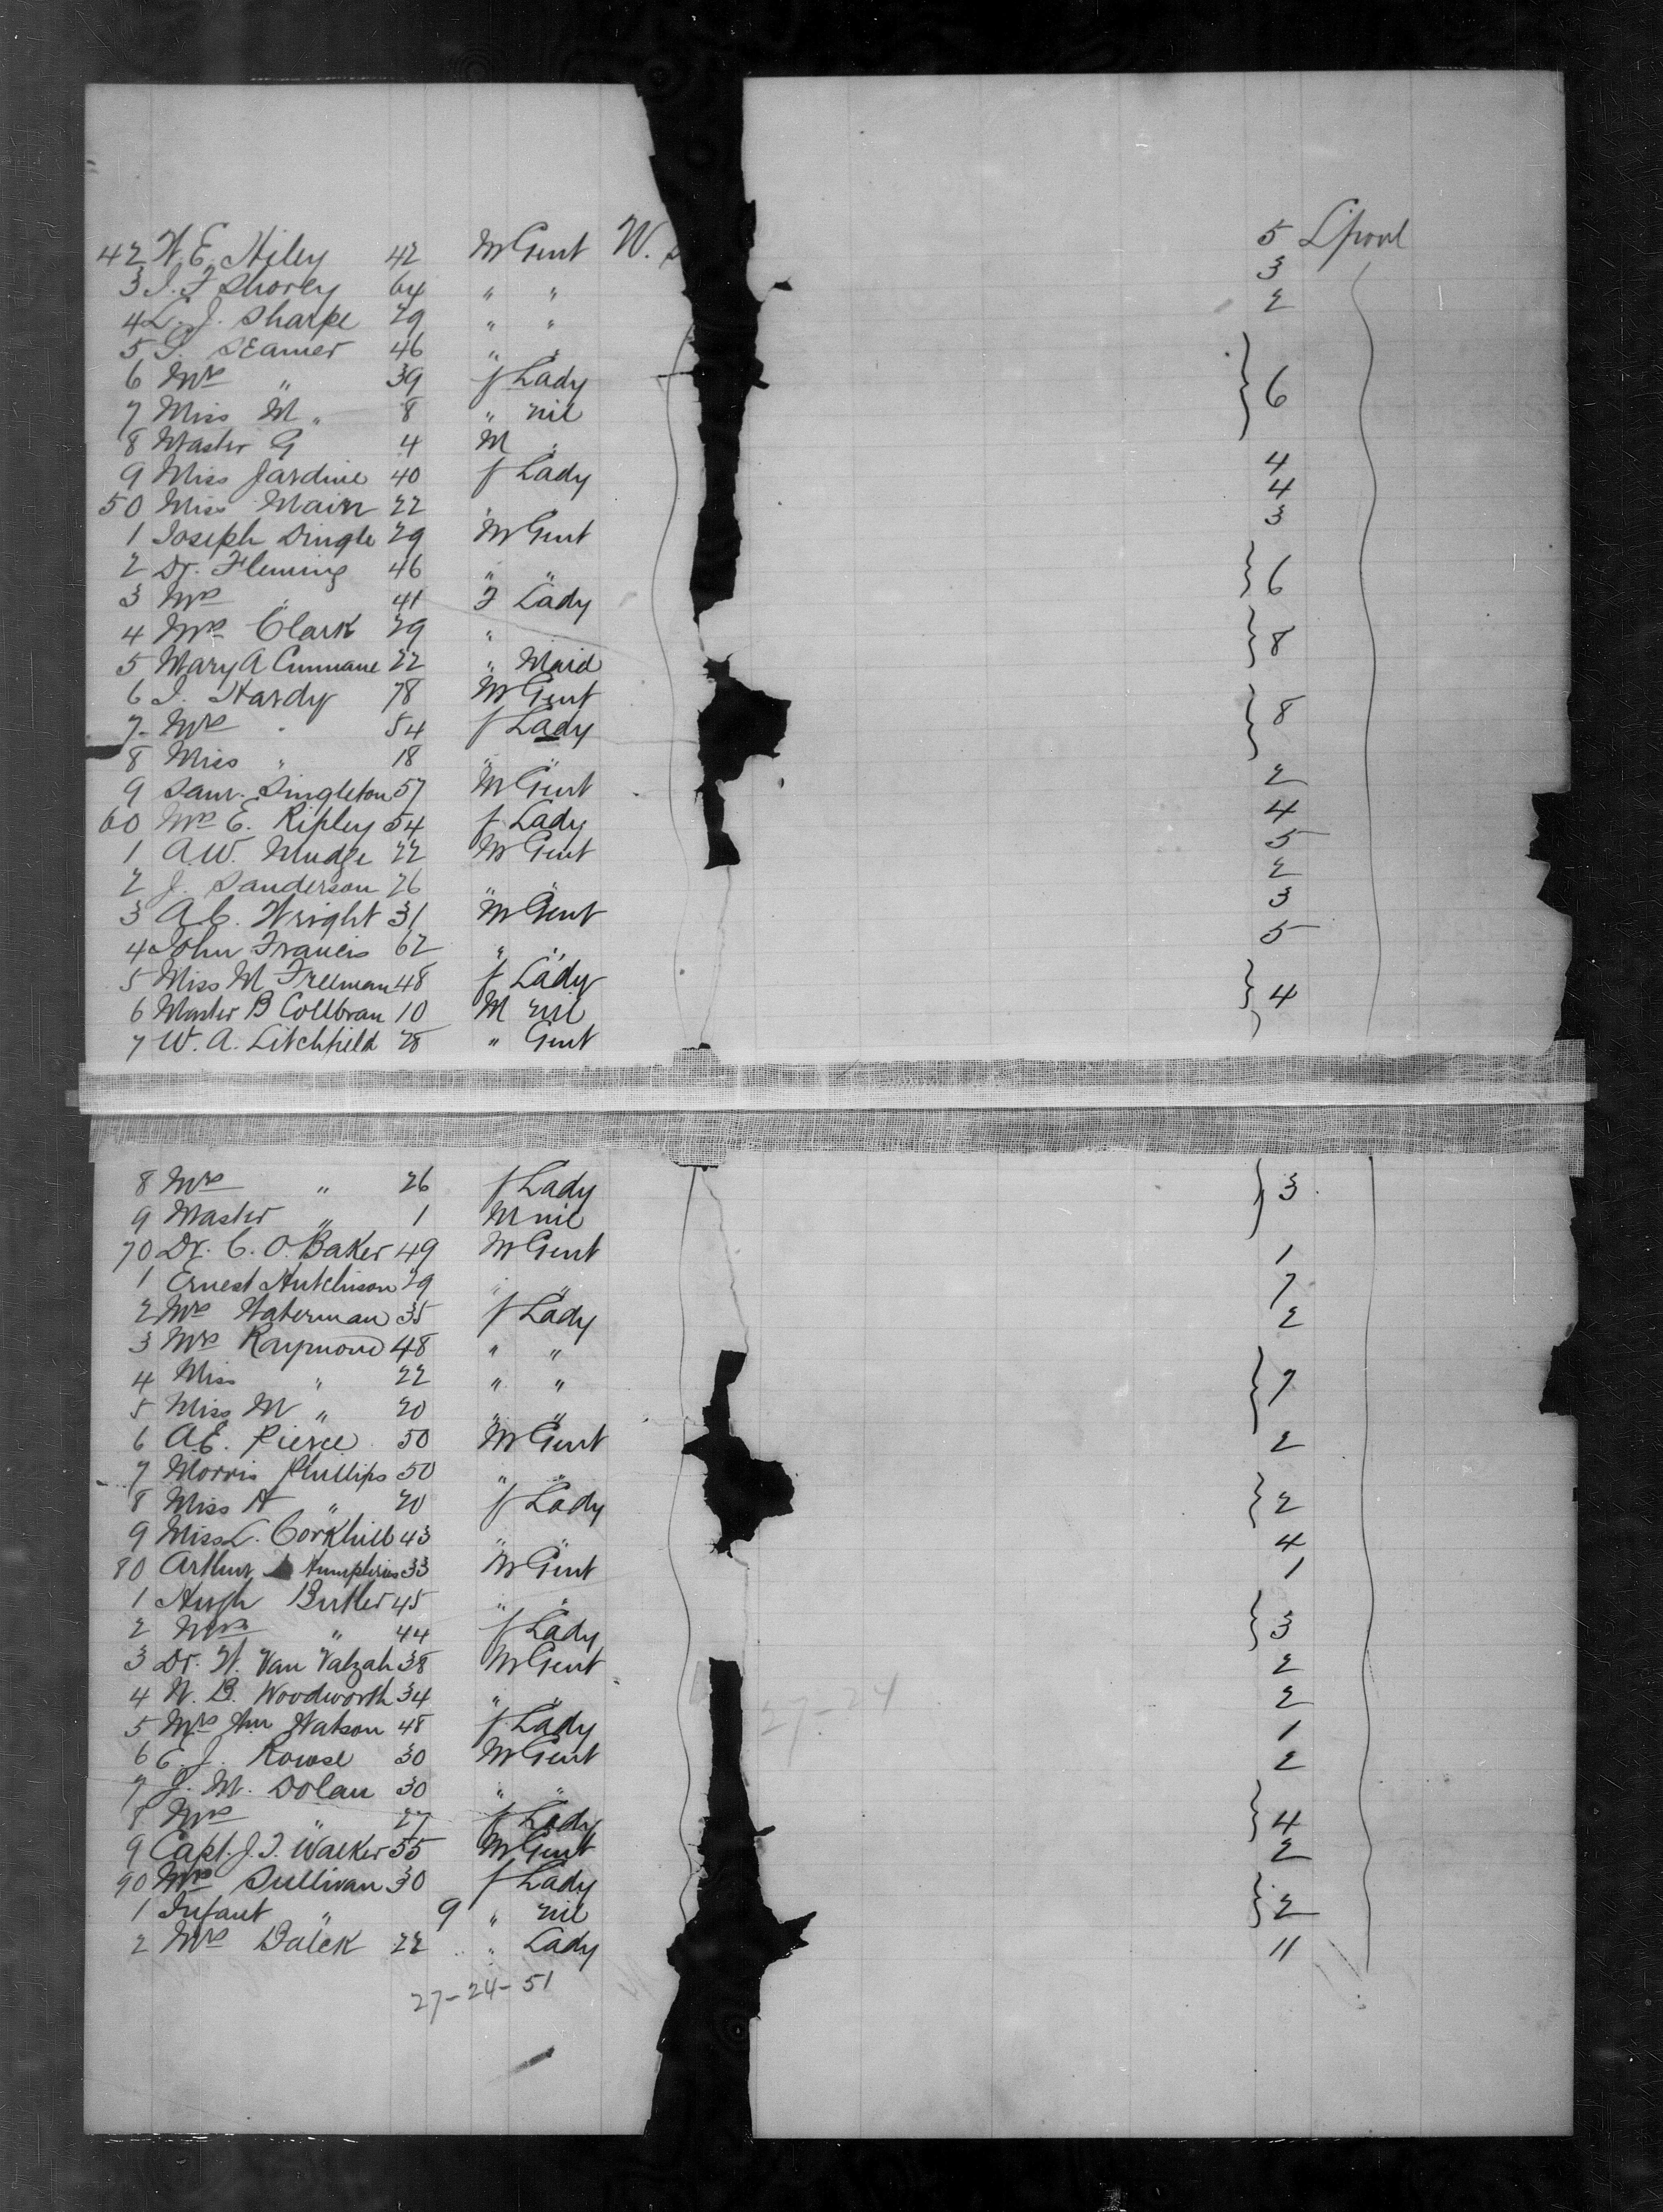 42 W. E. Hiley 42 M Gent W. 5 L'pool
3 J. F. Shorey 64 " " 3
4 L. J. Sharpe 29 " " 2
5 J. Seamer 46 " "
6 Mrs " 39 f Lady } 6
7 Miss M " 8 " nil
8 Master G 4 M "
9 Miss Jardine 40 f Lady 4
50 Miss Mairn 22 " 4
1 Joseph Dingle 29 M Gent 3
2 Dr. Fleming 46 " " } 6
3 Mrs " 41 F Lady
4 Mrs Clark 29 " } 8
5 Mary A Cunnane 22 " Maid
6 J. Hardy 78 M Gent } 8
7 Mrs " 54 f Lady
8 Miss " 18 " "
9 Saml. Singleton 57 M Gent 2
60 Mrs E. Ripley 54 f Lady 4
1 A.W. Mudge 22 M Gent 5
2 J. Sanderson 26 " " 2
3 A.C. Wright 31 M Gent 3
4 John Francis 62 " " 5
5 Miss M Freeman 48 f Lady } 4
6 Master B Collbran 10 M nil
7 W. A. Litchfield 28 " Gent
8 Mrs " 26 f Lady } 3
9 Master " 1 M nil
70 Dr. C. O. Baker 49 M Gent 1
1 Ernest Hutchinson 29 " " 7
2 Mrs Waterman 35 f Lady 2
3 Mrs Raymond 48 " "
4 Miss " 22 " " } 7
5 Miss M " 20 " "
6 A.E. Pierce 50 M Gent 2
7 Morris Phillips 50 " " } 2
8 Miss A " 20 f Lady
9 Miss L. Corkhill 43 " " 4
80 Arthur Humphries 33 M Gent 1
1 Hugh Butler 45 " " } 3
2 Mrs " 44 f Lady
3 Dr. W. Van Valzah 38 M Gent 2
4 N. B. Woodworth 34 " " 2
27-24
5 Mrs Wm Watson 48 f Lady 1
6 E. J. Rowse 30 M Gent 2
7 J. M. Dolan 30 " " } 4
8 Mrs " 27 f Lady
9 Capt. J. T. Walker 55 M Gent 2
90 Mrs Sullivan 30 f Lady } 2
1 Infant " 9 " nil
2 Mrs Balck 22 " Lady 11
27-24-51